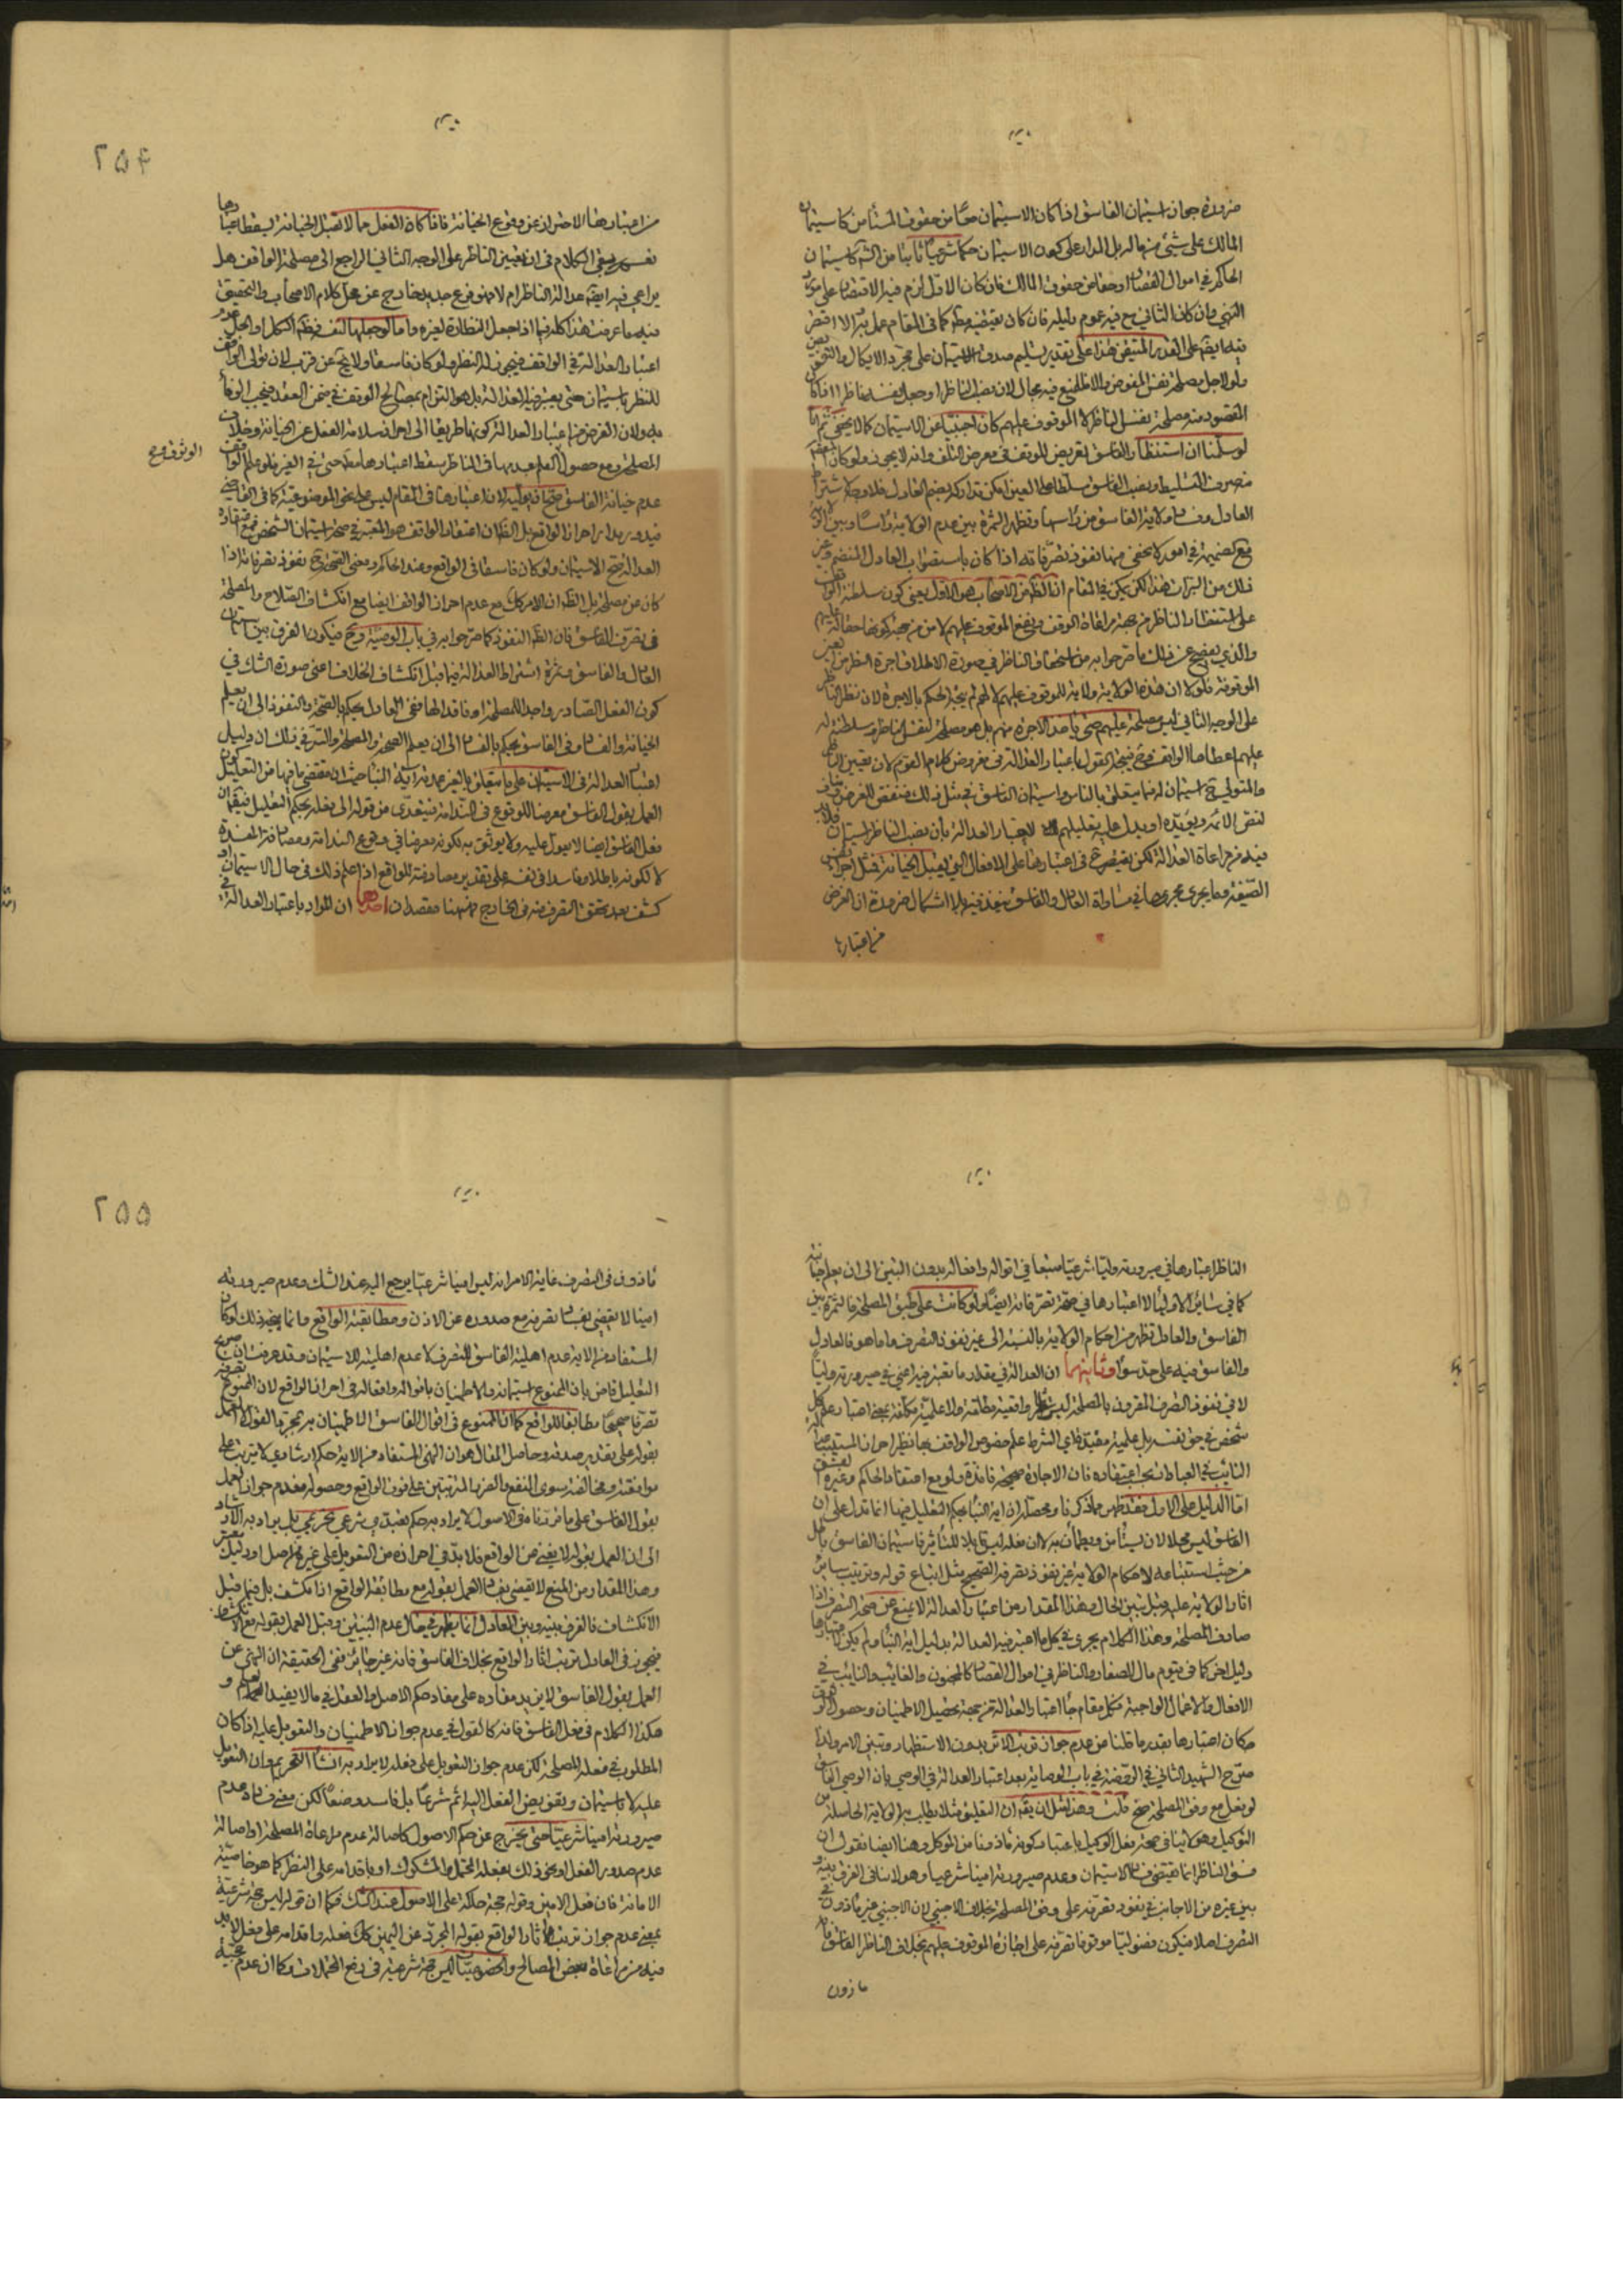 ضرورة جواز استيمان الفاسق اذا كان الاستيمان حقا من حقوق المستأمن كاستيمان
المالك على شئ من ماله بل المدار على كون الاستيمان حكما شرعيا ثابتا من الشرع كاستيمان
الحاكم في اموال القصار او حقا من حقوق المالك فان كان الاول لزم فيه الاقتصار على مورد
النهي وان كان الثاني
فيه ايضا على القدر المتيقن هذا على تقدير تسليم صدق الاستيمان على مجرد الايكال والتفويض
ولو لاجل مصلحة نفس المفوض والا فللمنع فيه مجال لان نصب الناظر او جعل نفسه ناظرا اذا كان
المقصود منه مصلحة نفس الناظر لا الموقوف عليهم كان اجنبيا عن الاستيمان كما لا يخفى ثم انا
لو سلمنا ان استنظار الفاسق تعريض للوقف في معرض التلف وانه لا يجوز ولو كان
العادل وفساد ولاية الفاسق من رأسها وتظهر الثمرة بين عدم الولاية رأسا وبين الولاية
مع كضميمة في امور لا تخفى منها نفوذ تصرفاته اذا كان باستصواب العادل المنضم وغير
ذلك من الثمرات هذا لكن يمكن في المقام ان الظ من الاصحاب هو الاول يعني كون سلطنة الواقف
على استنظار الناظر من جهة مراعاة الوقف ونفع الموقوف عليهم لا من جهة كونها حقا له
والذي يفصح عن ذلك ما صرحوا به من استحقاق الناظر في صورة الاطلاق اجرة النظر من
الموقوفة فلولا ان هذه الولاية ولاية للموقوف عليهم لا لهم لم يتجه الحكم بالاجرة لان نظر الناظر
على الوجه الثاني ليس مصلحة عليهم حتى ياخذ الاجرة منهم بل هو مصلحة لنفس الناظر وسلطنة له
عليهم اعطاها الواقف وح فيتجه القول باعتبار العدالة في مفروض كلام القوم لان تعيين الناظر
والمتولي ح استيمان له فيما يتعلق بالناس واستيمان الفاسق في مثل ذلك
لنص الائمة ويؤيده او يدل عليه تعليلهم لاعتبار العدالة بأن نصب الناظر استيمان فلابد
فيه من مراعاة العدالة لكن يقتصر ح في اعتبارها على الافعال التي يعتبر الخيانة فمثل اجراء بعض
الصيغة وما يجري مجراها في مساواة العادل والفاسق ينفذ فيه بلا اشكال ضرورة ان الغرض
من اعتبارها
٢٥٤
من اعتبارها الاحتراز عن وقوع الخيانة فاذا كان الفعل مما لا تقبل الخيانة يسقط اعتبارها
بقي الكلام في ان تعيين الناظر على الوجه الثاني الراجع الى مصلحة الواقف هل
يراعى فيه ايضا عدالة الناظر ام لا وهو فرع جديد خارج عن محل كلام الاصحاب والتحقيق
فيه ما عرفت هذا كله فيما اذا جعل النظارة لغيره واما لو جعلها لنفسه فظ الكل او الجل عدم
اعتبار العدالة في الواقف فيجوز له النظر ولو كان فاسقا ولا يخ عن قرب لان تولى الواقف
للنظر ليس باستيمان حتى يعتبر فيه العدالة بل هو التزام بمصالح الوقف في ضمن العقد فيجب الوفاء
به ولان الغرض من اعتبار العدالة كونها طريقا الى احراز سلامة الفعل عن الخيانة وخلاف
المصلحة ومع حصول العلم بعدمها في الناظر يسقط اعتبارها مط حتى في الغير فلو علم الواقف
الوثوق صح
عدم خيانة الفاسق صح توليته لان اعتبارها في المقام ليس على نحو الموضوعية كما في القاضي
فيدور مدار احراز الواقع بل الظ ان اعتقاد الواقف هو المعتبر في صحة استيمان الشخص فمع اعتقاده
العدالة يصح الاستيمان ولو كان فاسقا في الواقع وعند الحاكم ومعنى الصحة ح نفوذ تصرفاته اذا
كان عن مصلحة بل الظ ان الامر كك مع عدم احراز الواقف ايضا مع انكشاف الصلاح والمصلحة
في تصرف الفاسق فان الظ النفوذ كما صرحوا به في باب الوصية وح فيكون الفرق بين استيمان
العادل والفاسق وثمرة اشتراط العدالة فيما قبل انكشاف الخلاف اعني صورة الشك في
كون الفعل الصادر واجدا للمصلحة او فاقدا لها ففي العادل يحكم بالصحة والنفوذ الى ان يعلم
الخيانة والفساد وفي الفاسق يحكم بالفساد الى ان يعلم الصحة والمصلحة والسر في ذلك ان دليل
اعتبار العدالة في الاستيمان على ما يتعلق بالغير عمدته اية النبأ حيث ان مقتضى ما فيها من التعليل كون
العمل بقول الفاسق معرضا للوقوع في الندامة فيتعدى من قوله الى فعله بحكم التعليل فيقال ان
فعل الفاسق ايضا لا يعول عليه ولا يوثق به لكونه معرضا في وقوع الندامة ومصادفة المفسدة
لا لكونه باطلا وفاسدا في نفسه على تقدير مصادفة الواقع اذا علم ذلك في حال الاستيمان او
كشف بعد تحقق التصرف منه في الخارج فههنا مقصدان احدهما ان المراد باعتبار العدالة في
الناظر اعتبارها في صيرورته وليا شرعيا متبعا في اقواله وافعاله بدون التبين الى ان يعلم خيانته
كما في سائر الاولياء لا اعتبارها في صحة تصرفاته ايضا ولو كانت على طبق المصلحة فالثمرة بين
الفاسق والعادل تظهر من احكام الولاية بالنسبة الى غير نفوذ التصرف واما هو فالعادل
والفاسق فيه على حد سواء وثانيهما ان العدالة في مقدار ما تعتبر فيه اعني في صيرورته وليا
لا في نفوذ التصرف المقرون بالمصلحة ليس شرطا واقعية مطلقة ولا علمية مكانة بمعنى اعتبار علم كل
شخص في حق نفسه بل علمية مقيدة فاي الشرط علم خصوص الواقف بها نظير احراز المستنيب عدالة
النائب في العبادات بحسب اعتقاده فان الاجارة صحيحة نافذة ولو مع اعتقاد الحاكم وغيره لفسق
اما الدليل على الاول فقد ظهر مما ذكرنا ومحصله ان اية النبأ بحكم التعليل فيها انما تدل على ان
الفاسق ليس محلا لان يستأمن ويطمأن به لا ان فعله ليس قابلا للتأثير فاستيمان الفاسق باطل
من حيث استتباعه لاحكام الولاية غير نفوذ تصرفه الصحيح مثل اتباع قوله وترتيب سائر
اثار الولاية عليه وقبل تبين الحال وهذا المقدار من اعتبار العدالة لا يمنع عن صحة التصرف اذا
صادف المصلحة وهذا الكلام يجري في كل ما اعتبر فيه العدالة بدليل اية النبأ ولم يكن لاعتبارها
دليل اخر كما في قيوم مال الصغار والناظر في اموال القصار كالمجنون والغايب والنايب في
الافعال والاعمال الواجبة فكل مقام جاء اعتبار العدالة من جهة تحصيل الاطمينان وحصول الوثوق
فكان اعتبارها بقدر ما قلنا من عدم جواز ترتيب الاثر بدون الاستظهار وتبين الامر ولذا
صرح الشهيد الثاني في الروضة في باب الوصاية بعد اعتبار العدالة في الوصي بان الوصي الفاسق
لو فعل مع وفق المصلحة صح قلت وهذا مثل ان يقال ان التعليق مثلا يبطل به الولاية الحاصلة من
التوكيل وهو لا ينافي صحة فعل الوكيل باعتبار كونه مأذونا من الموكل وهنا ايضا نقول ان
فسق الناظر انما يقتضي فساد الاستيمان وعدم صيرورته امينا شرعيا وهو لا ينافي الفرق بينه و
بين غيره من الاجانب في نفوذ تصرفه على وفق المصلحة بخلاف الاجنبي لان الاجنبي غير مأذون في
التصرف اصلا فيكون فضوليا موقوفا تصرفه على اجازة الموقوف عليهم بخلاف الناظر الفاسق فانه
ماذون
٢٥٥
مأذون في التصرف غاية الامر انه ليس امينا شرعيا يرجع اليه عند الشك وعدم صيرورته
امينا لا يقضي بفساد تصرفه مع صدوره عن الاذن ومطابقته الواقع وانما يتجه ذلك لو كان
المستفاد من الاية عدم اهلية الفاسق للتصرف لا عدم اهليته للاستيمان وقد عرفت ان صريح
التعليل قاض بان الممنوع استيمانه والاطمينان باقواله وافعاله في احراز الواقع لان الممنوع تصرفه
تصرفا صحيحا مطابقا للواقع كما ان الممنوع في اقوال الفاسق الاطمينان بمجرد القول لا العمل
بقوله على تقدير صدقه وحاصل المقال هو ان النهي المستفاد من الاية حكم ارشادي لا يترتب على
موافقته ومخالفته سوى النفع والضرر المترتبين على فوت الواقع وحصوله فعدم جواز العمل
بقول الفاسق على ما قررنا في الاصول لا يراد به حكم تعبدي شرعي تحريمي بل يراد به الارشاد
الى ان العمل بقوله لا يغني من الواقع فلا بد في احرازه من التعويل على غيره من اصل او دليل معتبر
وهذا المقدار من المنع لا يقضي بفساد العمل بقوله مع مطابقة الواقع اذا انكشف بل فيما قبل
الانكشاف فالفرق بينه وبين العادل انما يظهر في حال عدم التبين وقبل العمل بقوله
فيجوز في العادل ترتيب اثار الواقع بخلاف الفاسق فانه غير جائز ففي الحقيقة ان النهي عن
العمل بقول الفاسق لا يزيد مفاده على مفاد حكم الاصل والعقل في ما لا يفيد العلم و
هكذا الكلام في فعل الفاسق فانه كالقول في عدم جواز الاطمينان والتعويل عليه اذا كان
المطلوب في فعله المصلحة لكن عدم جواز التعويل على فعله لا يراد به انشاء التحريم وان التعويل
عليه لا باستيمان وتفويض الفعل اليه اثم شرعا بل فاسد وضعا لكن معنى فساده عدم
صيرورته امينا شرعيا حتى يخرج عن حكم الاصول كاصالة عدم مراعاة المصلحة او اصالة
عدم صدور الفعل ونحو ذلك بفعله المحتمل والمشكوك او باقدامه على النظر كما هو خاصية
الامانة فان فعل الامين وقوله حجة حاكمة على الاصول عند الشك فكما ان قوله ليس حجة شرعية
بمعنى عدم جواز ترتيب اثار الواقع بقوله المجرد عن اليقين كك فعله واقدامه على فعل لابد
فيه من مراعاة بعض المصالح والخصوصيات ليس حجة شرعية في دفع المحتملات وكما ان عدم حجية